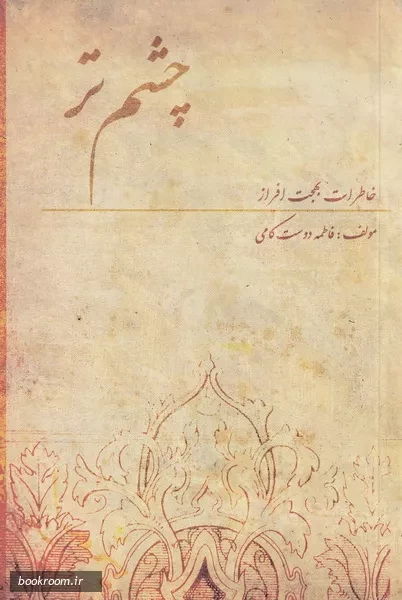 چشم تر
خاطرات بهجت افراز
مولف: فاطمه دوست کامی
bookroom.ir